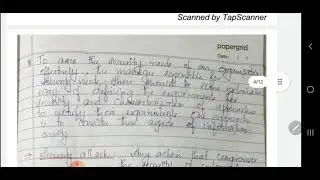 Scanned by TapScanner
papergrid
Date: / /
4/12
* To assess the security needs of an organization
effectively, the manager responsible for
security needs, there should be some systematic
way of defining the requirements for
security and characterization of approaches
to satisfy those requirements. One approach
is to consider three aspects of information
security
→ Security attack: Any action that compromises
the security of